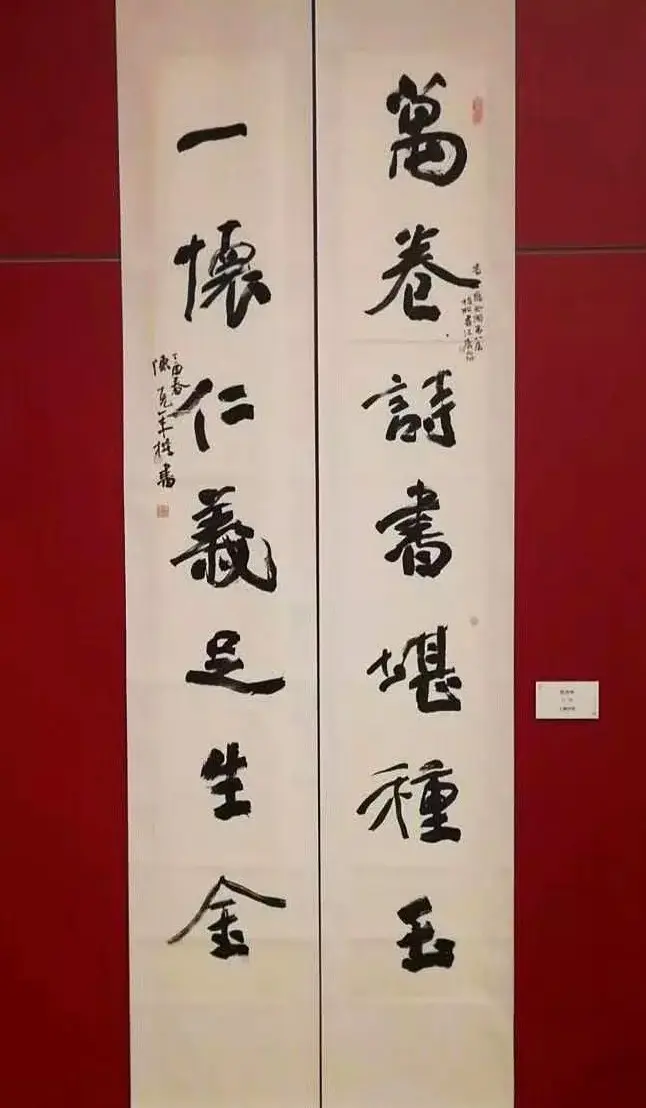 萬卷詩書堪種玉
一懷仁義足生金
丁酉春
陳克年撰書